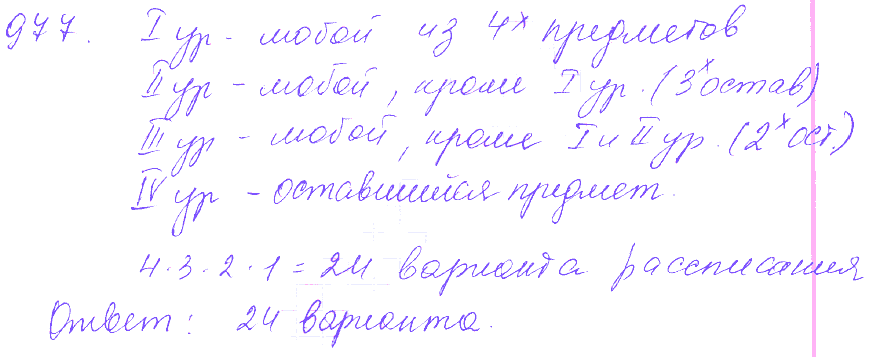 977. I ур - любой из 4х предметов
II ур - любой, кроме I ур. (3х остав)
III ур - любой, кроме I и II ур. (2х ост.)
IV ур - оставшийся предмет.
4 · 3 · 2 · 1 = 24 варианта рассписания
Ответ: 24 варианта.